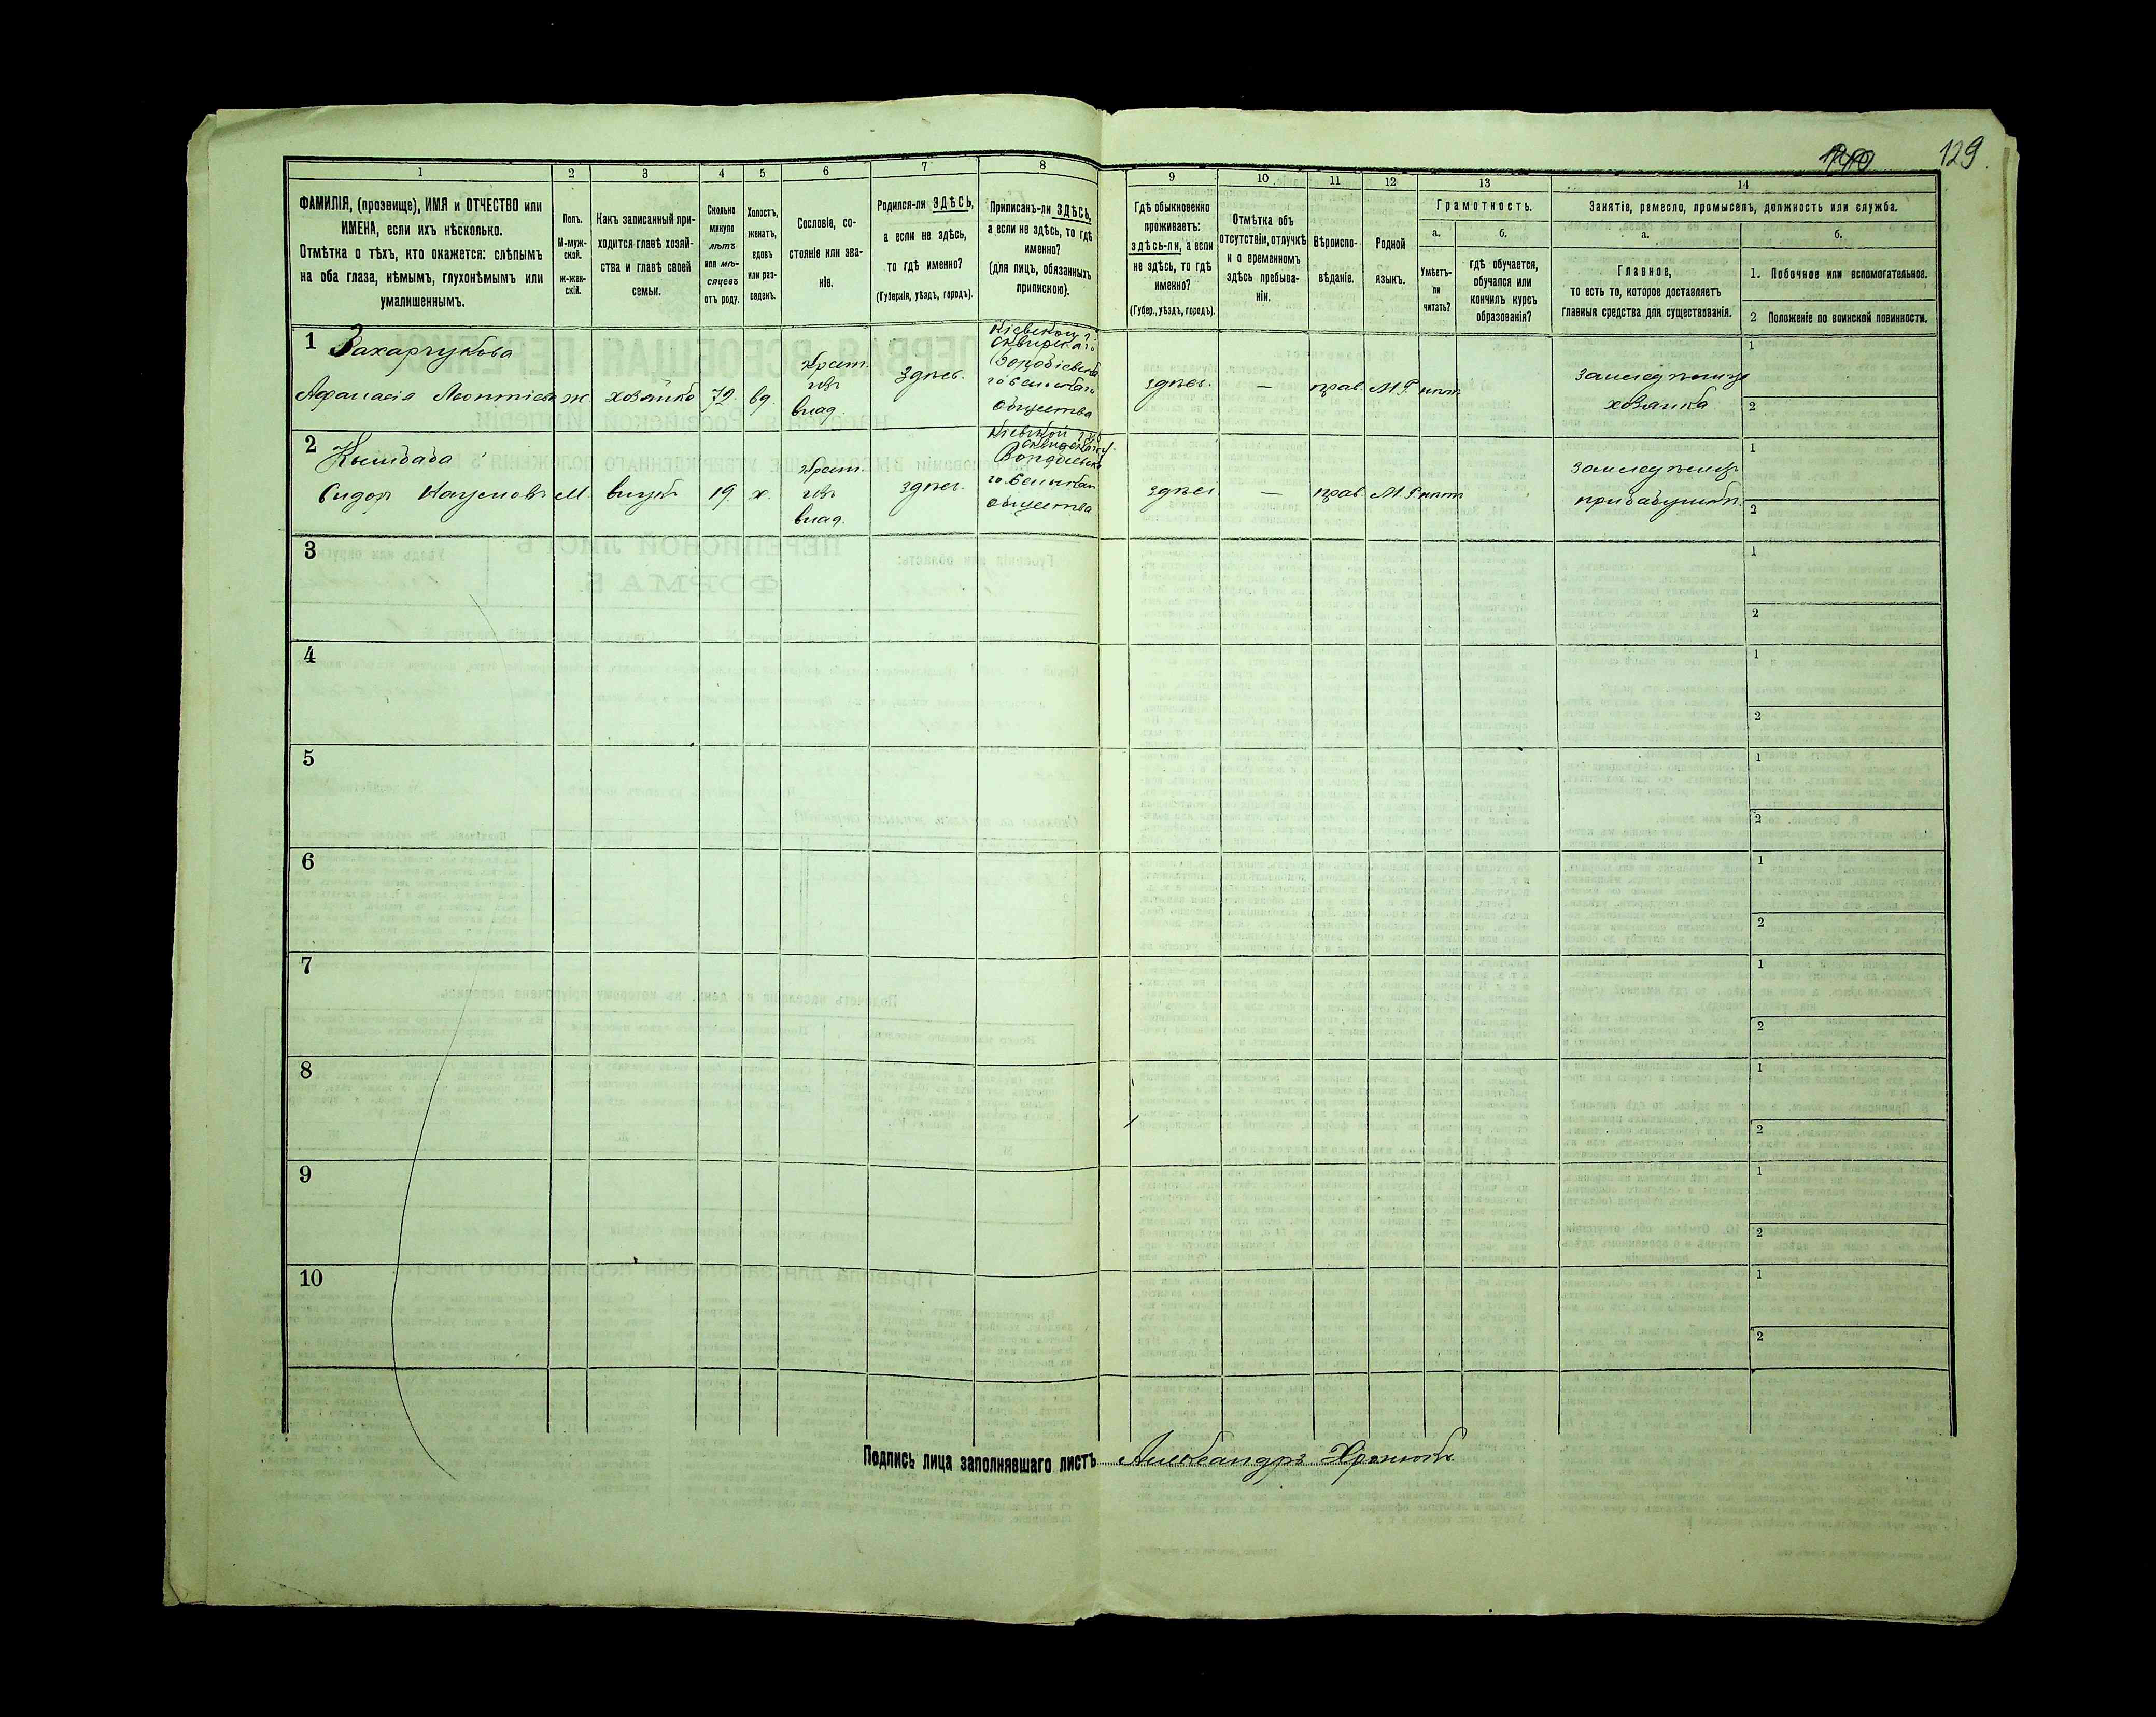 129
1
2
3
4
5
6
7
8
9
10
11
12
13
14
ФАМИЛІЯ, (прозвище), ИМЯ и ОТЧЕСТВО или
ИМЕНА, если ихъ нѣсколько.
Отмѣтка о тѣхъ, кто окажется: слѣпымъ
на оба глаза, нѣмымъ, глухонѣмымъ или
умалишеннымъ.
Полъ.
М-муж-
ской.
ж-жен-
скій.
Какъ записанный при-
ходится главѣ хозяй-
ства и главѣ своей
семьи.
Сколько
минуло
лѣтъ
или мѣ-
сяцевъ
отъ роду.
Холостъ,
женатъ,
вдовъ
или раз-
веденъ.
Сословіе, со-
стояніе или зва-
ніе.
Родился-ли ЗДѢСЬ,
а если не здѣсь,
то гдѣ именно?
(Губернія, уѣздъ, городъ).
Приписанъ-ли ЗДѢСЬ,
а если не здѣсь, то гдѣ
именно?
(для лицъ, обязанныхъ
припискою).
Гдѣ обыкновенно
проживаетъ:
здѣсь-ли, а если
не здѣсь, то гдѣ
именно?
(Губер., уѣздъ, городъ).
Отмѣтка объ
отсутствіи, отлучкѣ
и о временномъ
здѣсь пребыва-
ніи.
Вѣроиспо-
вѣданіе.
Родной
языкъ.
Грамотность.
а.
Умѣетъ-
ли
читать?
б.
гдѣ обучается,
обучался или
кончилъ курсъ
образованія?
Занятіе, ремесло, промыселъ, должность или служба.
а.
Главное,
то есть то, которое доставляетъ
главныя средства для существованія.
б.
1. Побочное или вспомогательное.
2 Положеніе по воинской повинности.
1 Захарчукова
Афанасія Леонтіева
ж
хозяйка
72
вд.
крест.
изъ
влад.
здѣсь.
Кіевской г.
Сквирскаго
го волости
общества
здѣсь.
—
прав.
М. Р.
нѣтъ
хозяйка
1
2
2
Сидоръ Наумовъ
М.
внукъ
19.
х.
крест.
изъ
влад.
здѣсь.
Кіевской
общества
здѣсь
—
прав.
М. Р.
нѣтъ
1
2
3
1
2
4
1
2
5
1
2
6
1
2
7
1
2
8
1
2
9
1
2
10
1
2
Подпись лица заполнявшаго листъ Александръ